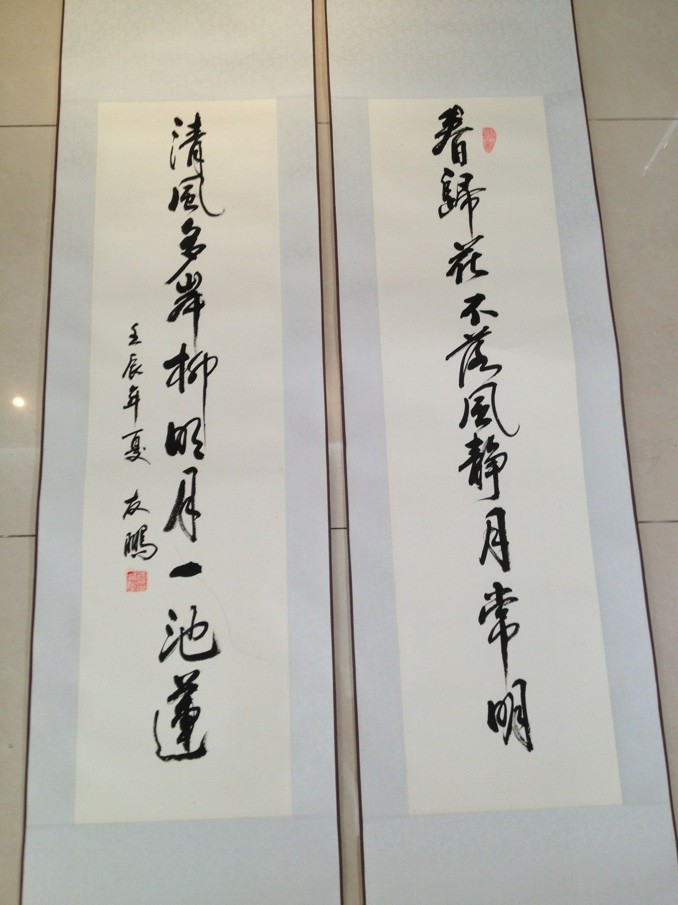 春歸花不落風靜月常明
清風多岸柳明月一池蓮
壬辰年夏 友鵬